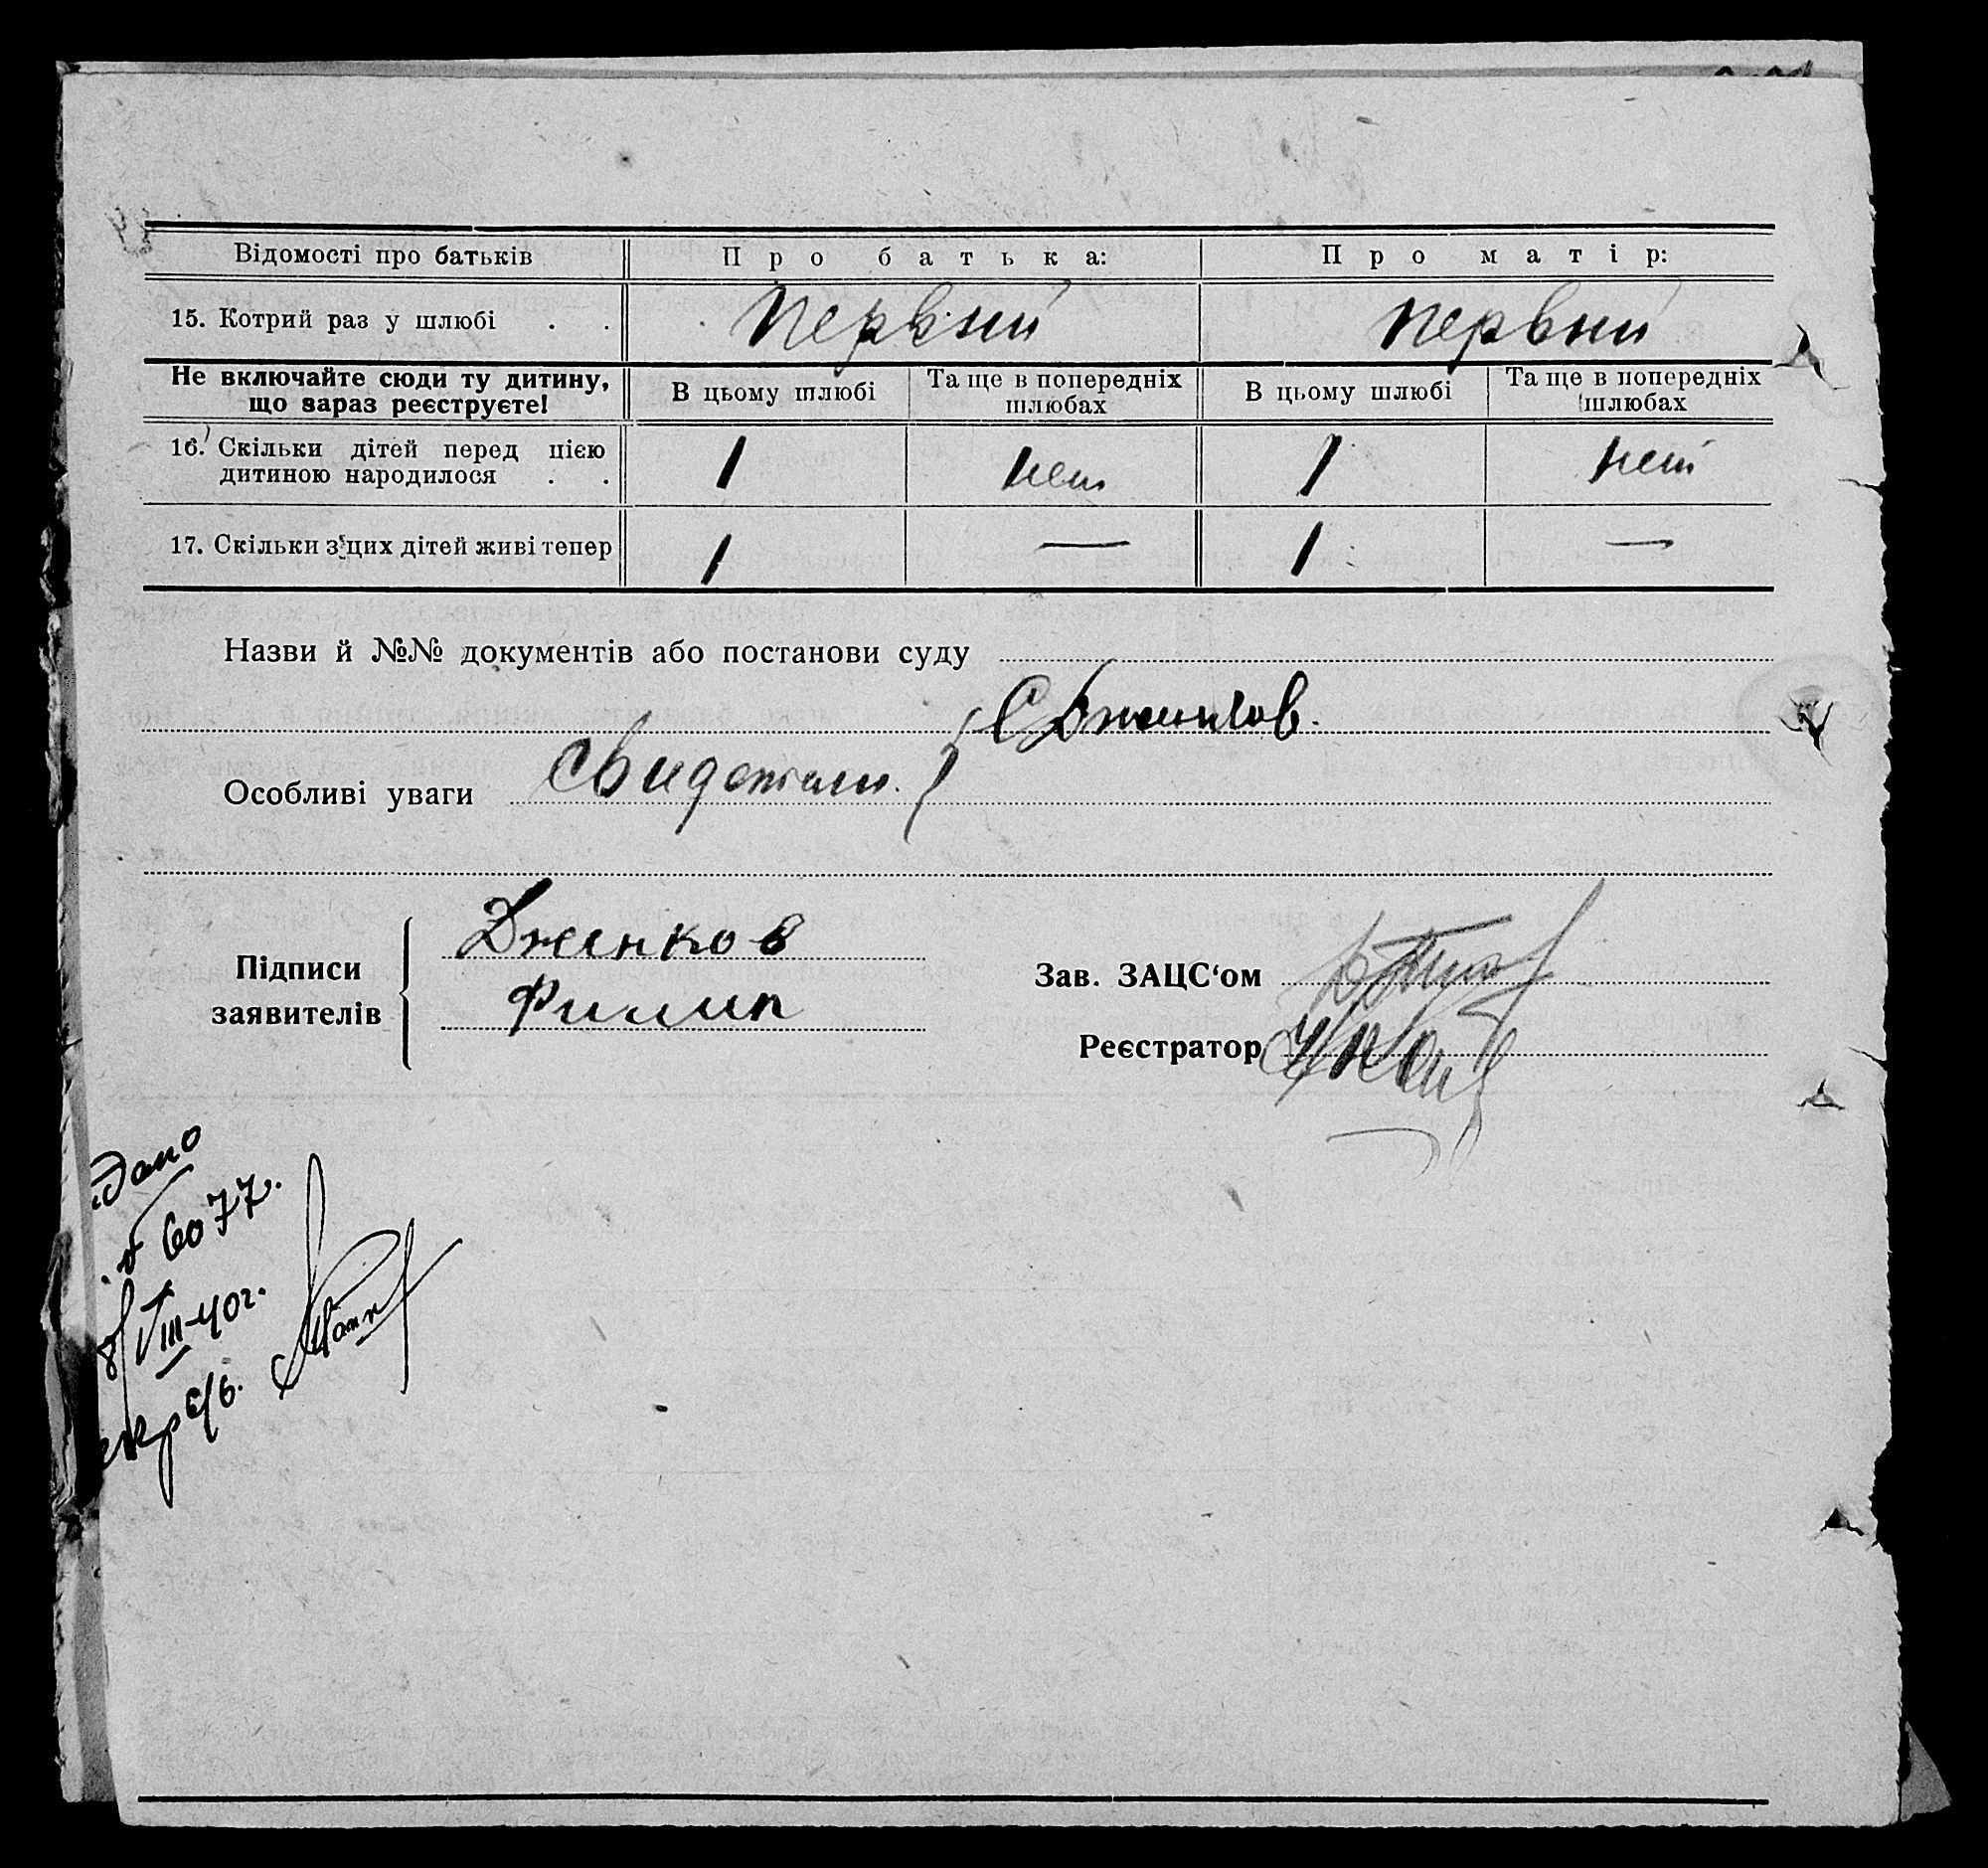 Відомості про батьків Про батька: Про матір:
15. Котрий раз у шлюбі . . Первый Первый
Не включайте сюди ту дитину, що зараз реєструєте! В цьому шлюбі Та ще в попередніх шлюбах В цьому шлюбі Та ще в попередніх шлюбах
16. Скільки дітей перед цією
дитиною народилося . . 1 нет 1 нет
17. Скільки з цих дітей живі тепер 1 — 1 —
Назви й №№ документів або постанови суду
Особливі уваги Свидетели
Підписи
заявителів
Дженков
Филип
Зав. ЗАЦС‘ом
Реєстратор
дано
6077.
8/VIII-40г.